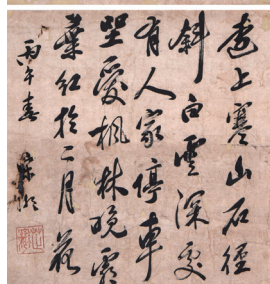 遠上寒山石徑
斜白雲深處
有人家停車
坐愛楓林晚霜
葉紅於二月花
丙午春